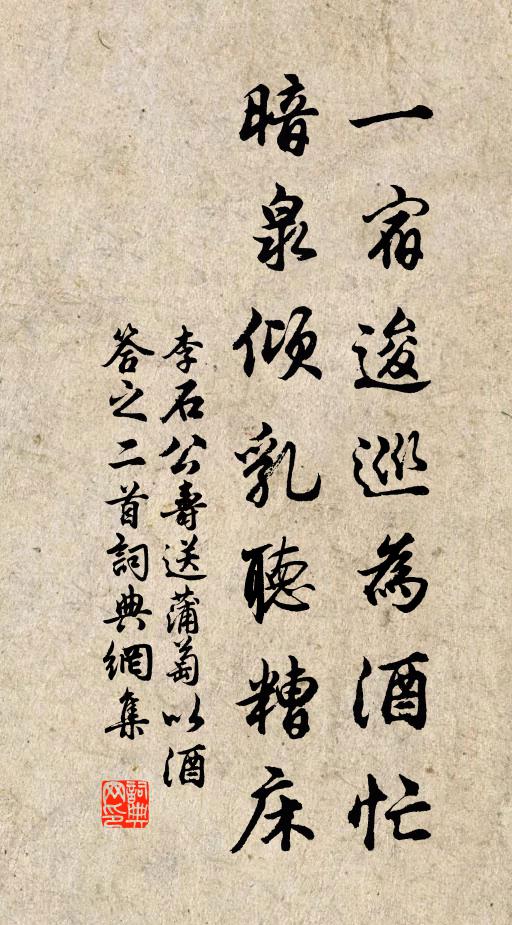 一宿逡巡為酒忙
暗泉傾乳聽糟床
李石公壽送蒲萄以酒
答之二首詞典網集
詞典
网印